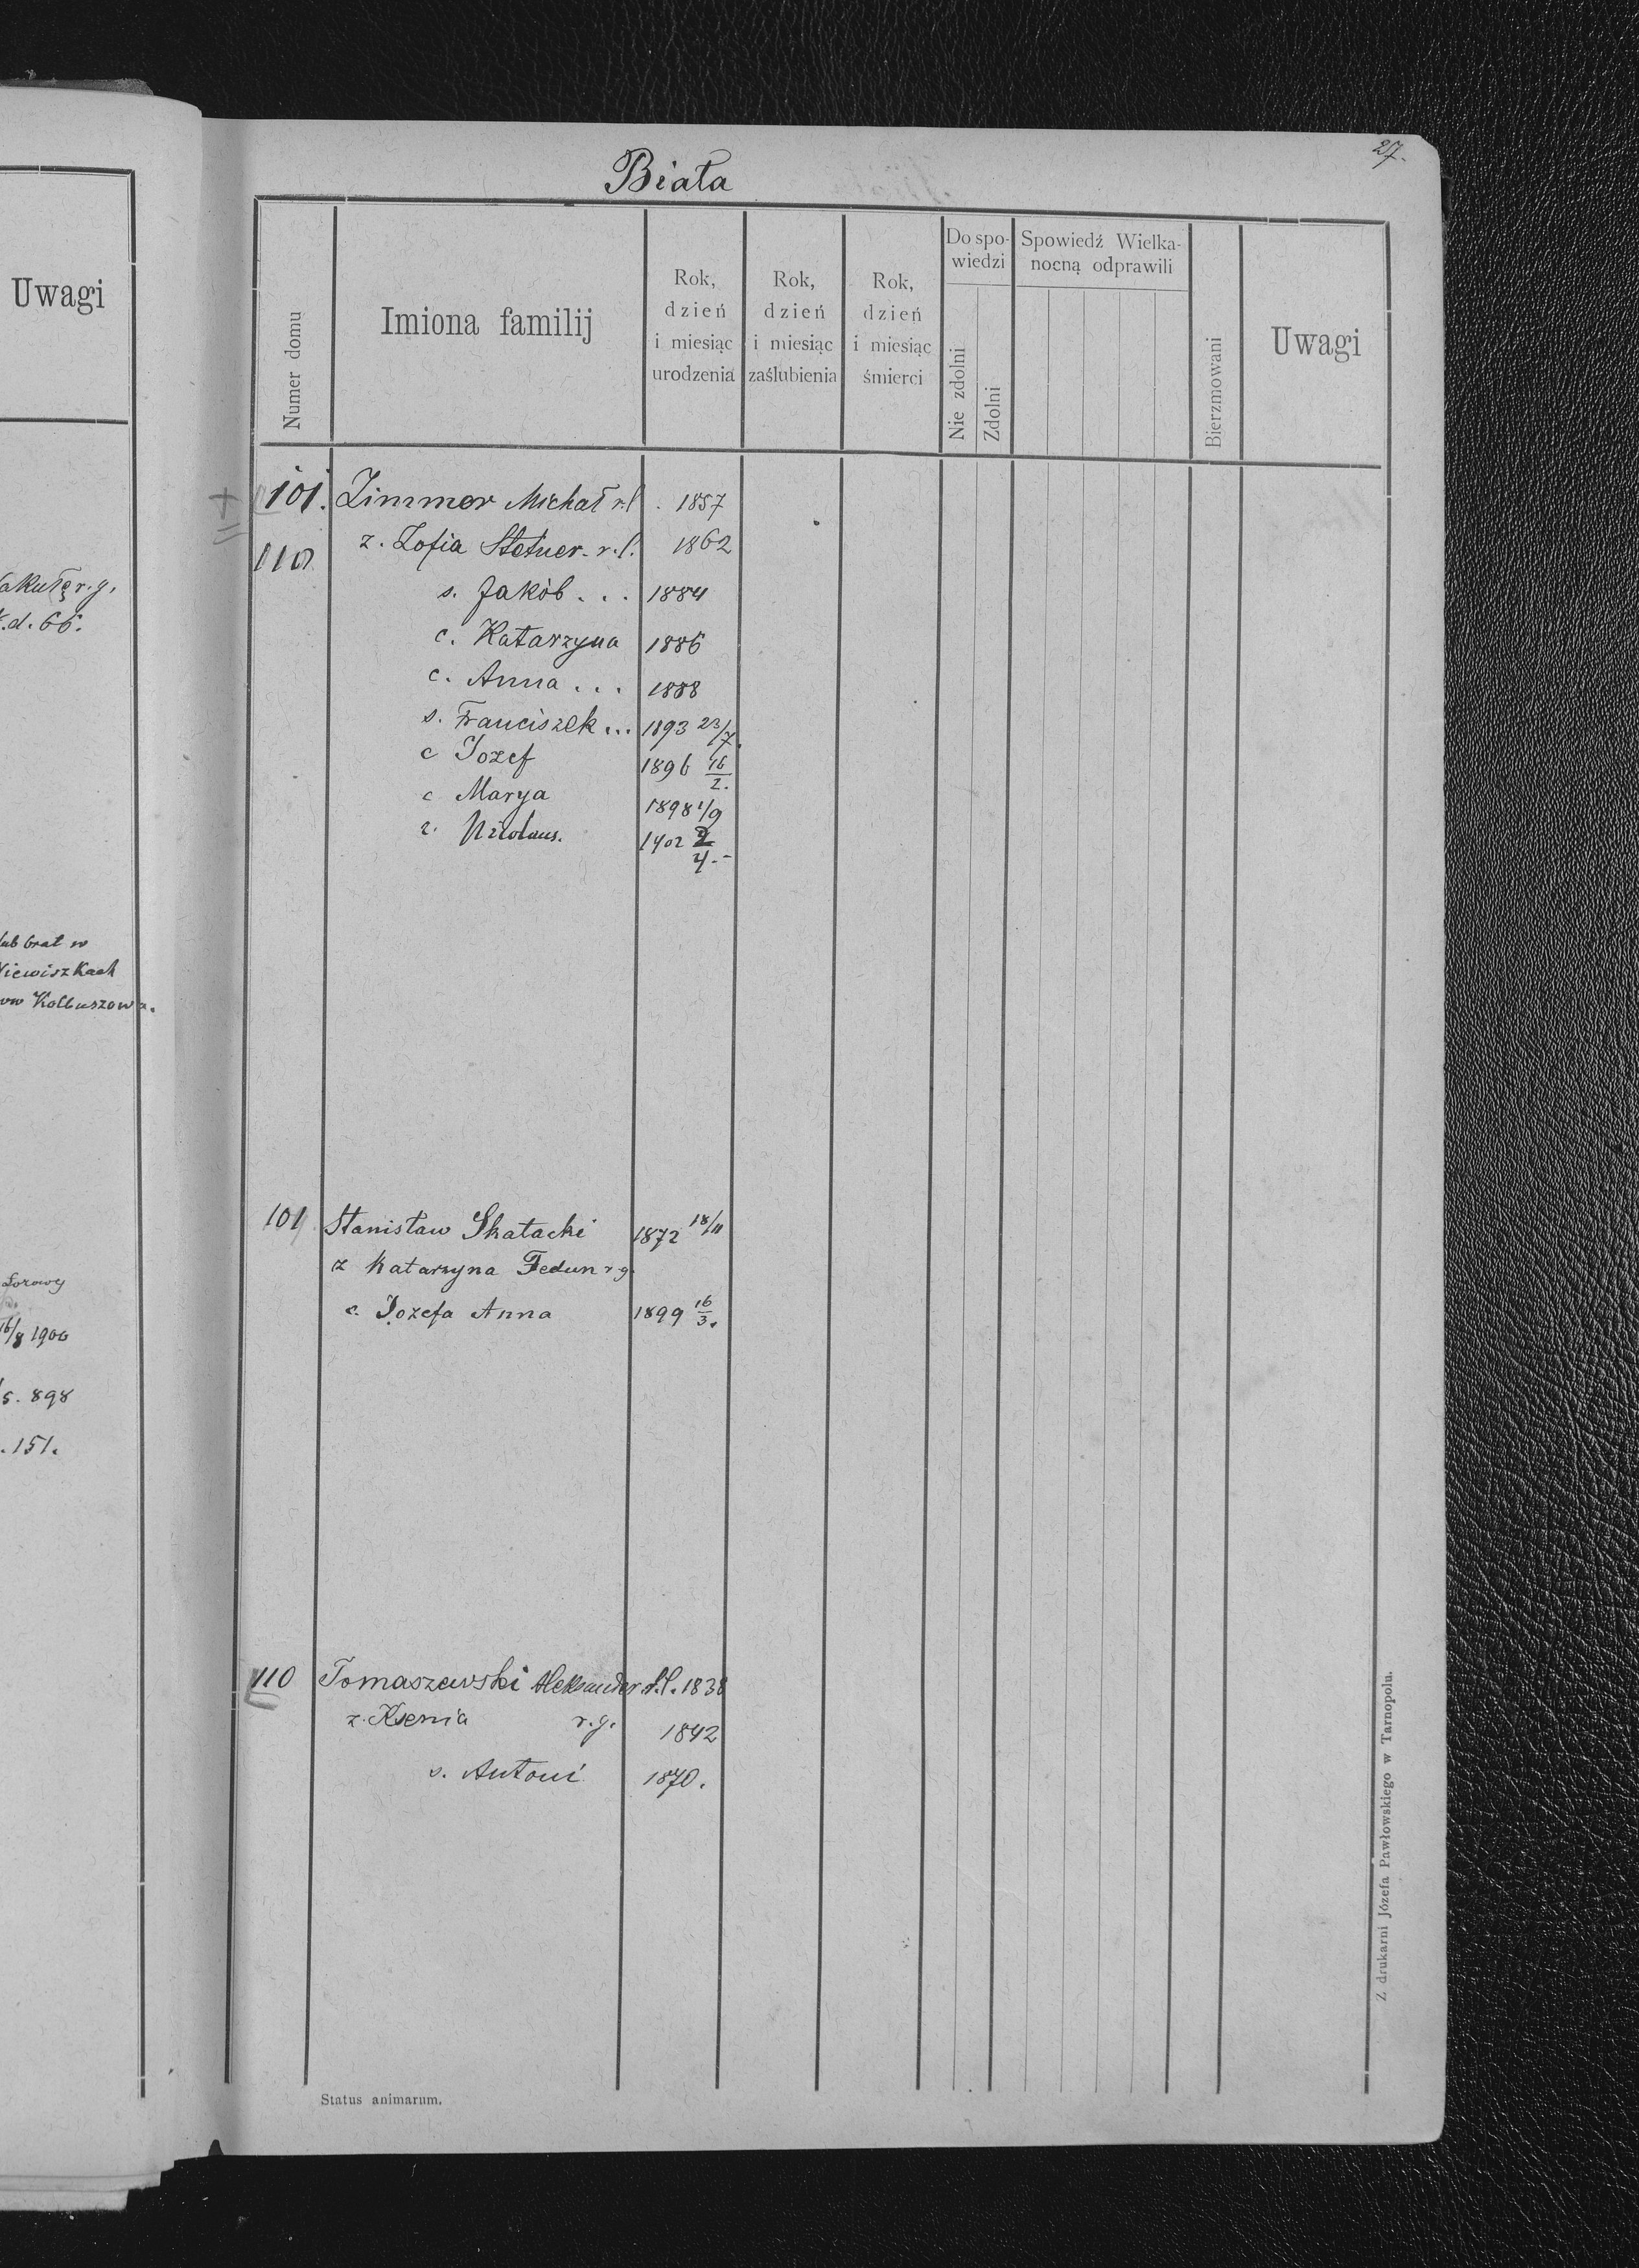 Uwagi
r.g.
d. 66.
brat w
Kolbuszowa.
16/8 1900
5. 898
151.
27.
Biała
Numer domu
Imiona familij
Rok, dzień i miesiąc urodzenia
Rok, dzień i miesiąc zaślubienia
Rok, dzień i miesiąc śmierci
Do spo-
wiedzi
Nie zdolni
Zdolni
Spowiedź Wielka-
nocną odprawili
Bierzmowani
Uwagi
101. Zimmer Michał r.l. 1857
110 z. Zofia r.l. 1862
s. Jakób . . . 1884
c. Katarzyna 1886
c. Anna . . . 1888
s. Franciszek ... 1893 23/7.
c Jozef 1896 16/2.
c Marya 1898 1/9
1902 2/4.-
101 Stanisław Skałacki 1872 18/11
z Katarzyna Fedun r g.
c. Jozefa Anna 1899 16/3.
110 Tomaszewski Aleksander r.l. 1838
z. Ksenia r.g. 1842
s. Antoni 1870.
Status animarum.
Z drukarni Józefa Pawłowskiego w Tarnopolu.